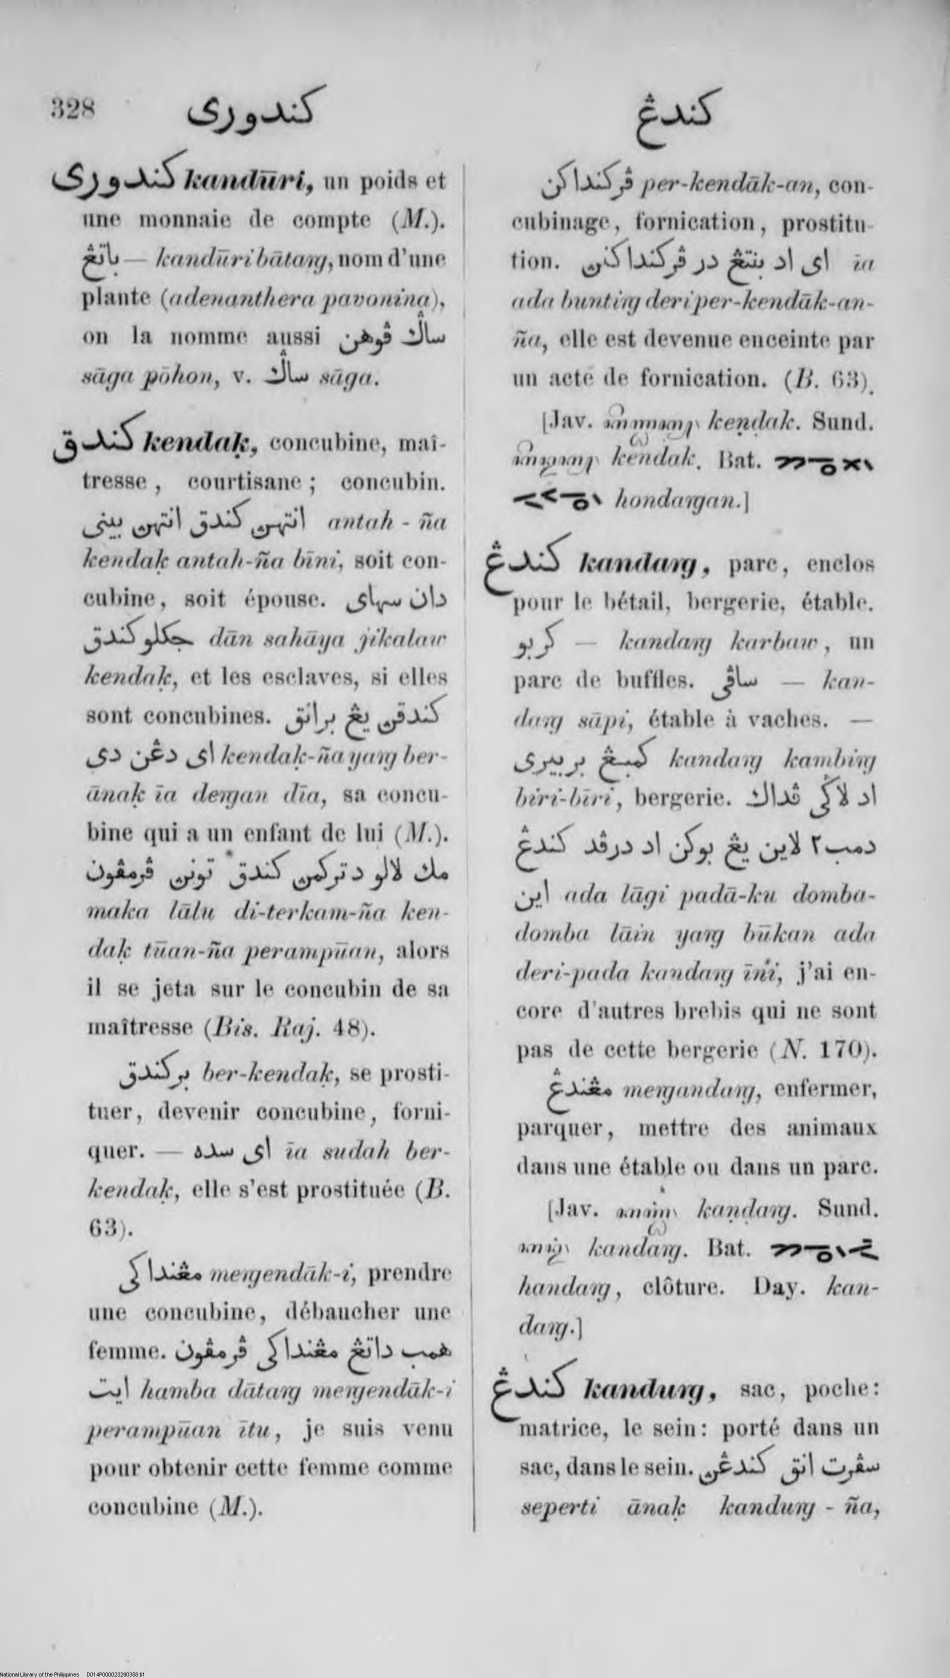 328
كندوري
كندڠ
كندوري kandūri, un poids et
une monnaie de compte (M.).
باتڠ — kandūri bātaŋ, nom d'une
plante (adenanthera pavonina),
on la nomme aussi ساݢ ڤوهن
sāga pōhon, v. ساݢ sāga.
كندق kendaḳ, concubine, maî-
tresse, courtisane; concubin.
انتهن كندق انتهن بيني antah-ña
kendaḳ antah-ña bīni, soit con-
cubine, soit épouse. دان سهاي
جكلو كندق dān sahāya jikalaw
kendaḳ, et les esclaves, si elles
sont concubines. كندقن يڠ برانق
اي دڠن دي kendaḳ-ña yaŋ ber-
ānaḳ īa deŋan dīa, sa concu-
bine qui a un enfant de lui (M.).
مك لالو دتركمن كندق تونن ڤرمڤون
maka lālu di-terkam-ña ken-
daḳ tūan-ña perampūan, alors
il se jeta sur le concubin de sa
maîtresse (Bis. Raj. 48).
بركندق ber-kendaḳ, se prosti-
tuer, devenir concubine, forni-
quer. — اي سده īa sudah ber-
kendaḳ, elle s'est prostituée (B.
63).
مڠنداكي meŋendāk-i, prendre
une concubine, débaucher une
femme. همب داتڠ مڠنداكي ڤرمڤون
ايت hamba dātaŋ meŋendāk-i
perampūan ītu, je suis venu
pour obtenir cette femme comme
concubine (M.).
ڤركنداكن per-kendāk-an, con-
cubinage, fornication, prostitu-
tion. اي اد بنتڠ در ڤركنداكنن īa
ada buntiŋ deri per-kendāk-an-
ña, elle est devenue enceinte par
un acte de fornication. (B. 63).
[Jav. keṇḍak. Sund.
kendak. Bat.
hondaŋan.]
كندڠ kandaŋ, parc, enclos
pour le bétail, bergerie, étable.
كربو — kandaŋ karbaw, un
parc de buffles. ساڤي — kan-
daŋ sāpi, étable à vaches. —
كمبڠ بربيري kandaŋ kambiŋ
biri-bīri, bergerie. اد لاݢي ڤداك
دمب٢ لاين يڠ بوكن اد درڤد كندڠ
اين ada lāgi padā-ku domba-
domba lāin yaŋ būkan ada
deri-pada kandaŋ īni, j'ai en-
core d'autres brebis qui ne sont
pas de cette bergerie (N. 170).
مڠندڠ meŋandaŋ, enfermer,
parquer, mettre des animaux
dans une étable ou dans un parc.
[Jav. kaṇḍaŋ. Sund.
kandaŋ. Bat.
handaŋ, clôture. Day. kan-
daŋ.]
كندڠ kanduŋ, sac, poche:
matrice, le sein: porté dans un
sac, dans le sein. سڤرت انق كندڠن
seperti ānaḳ kanduŋ-ña,
National Library of the Philippines